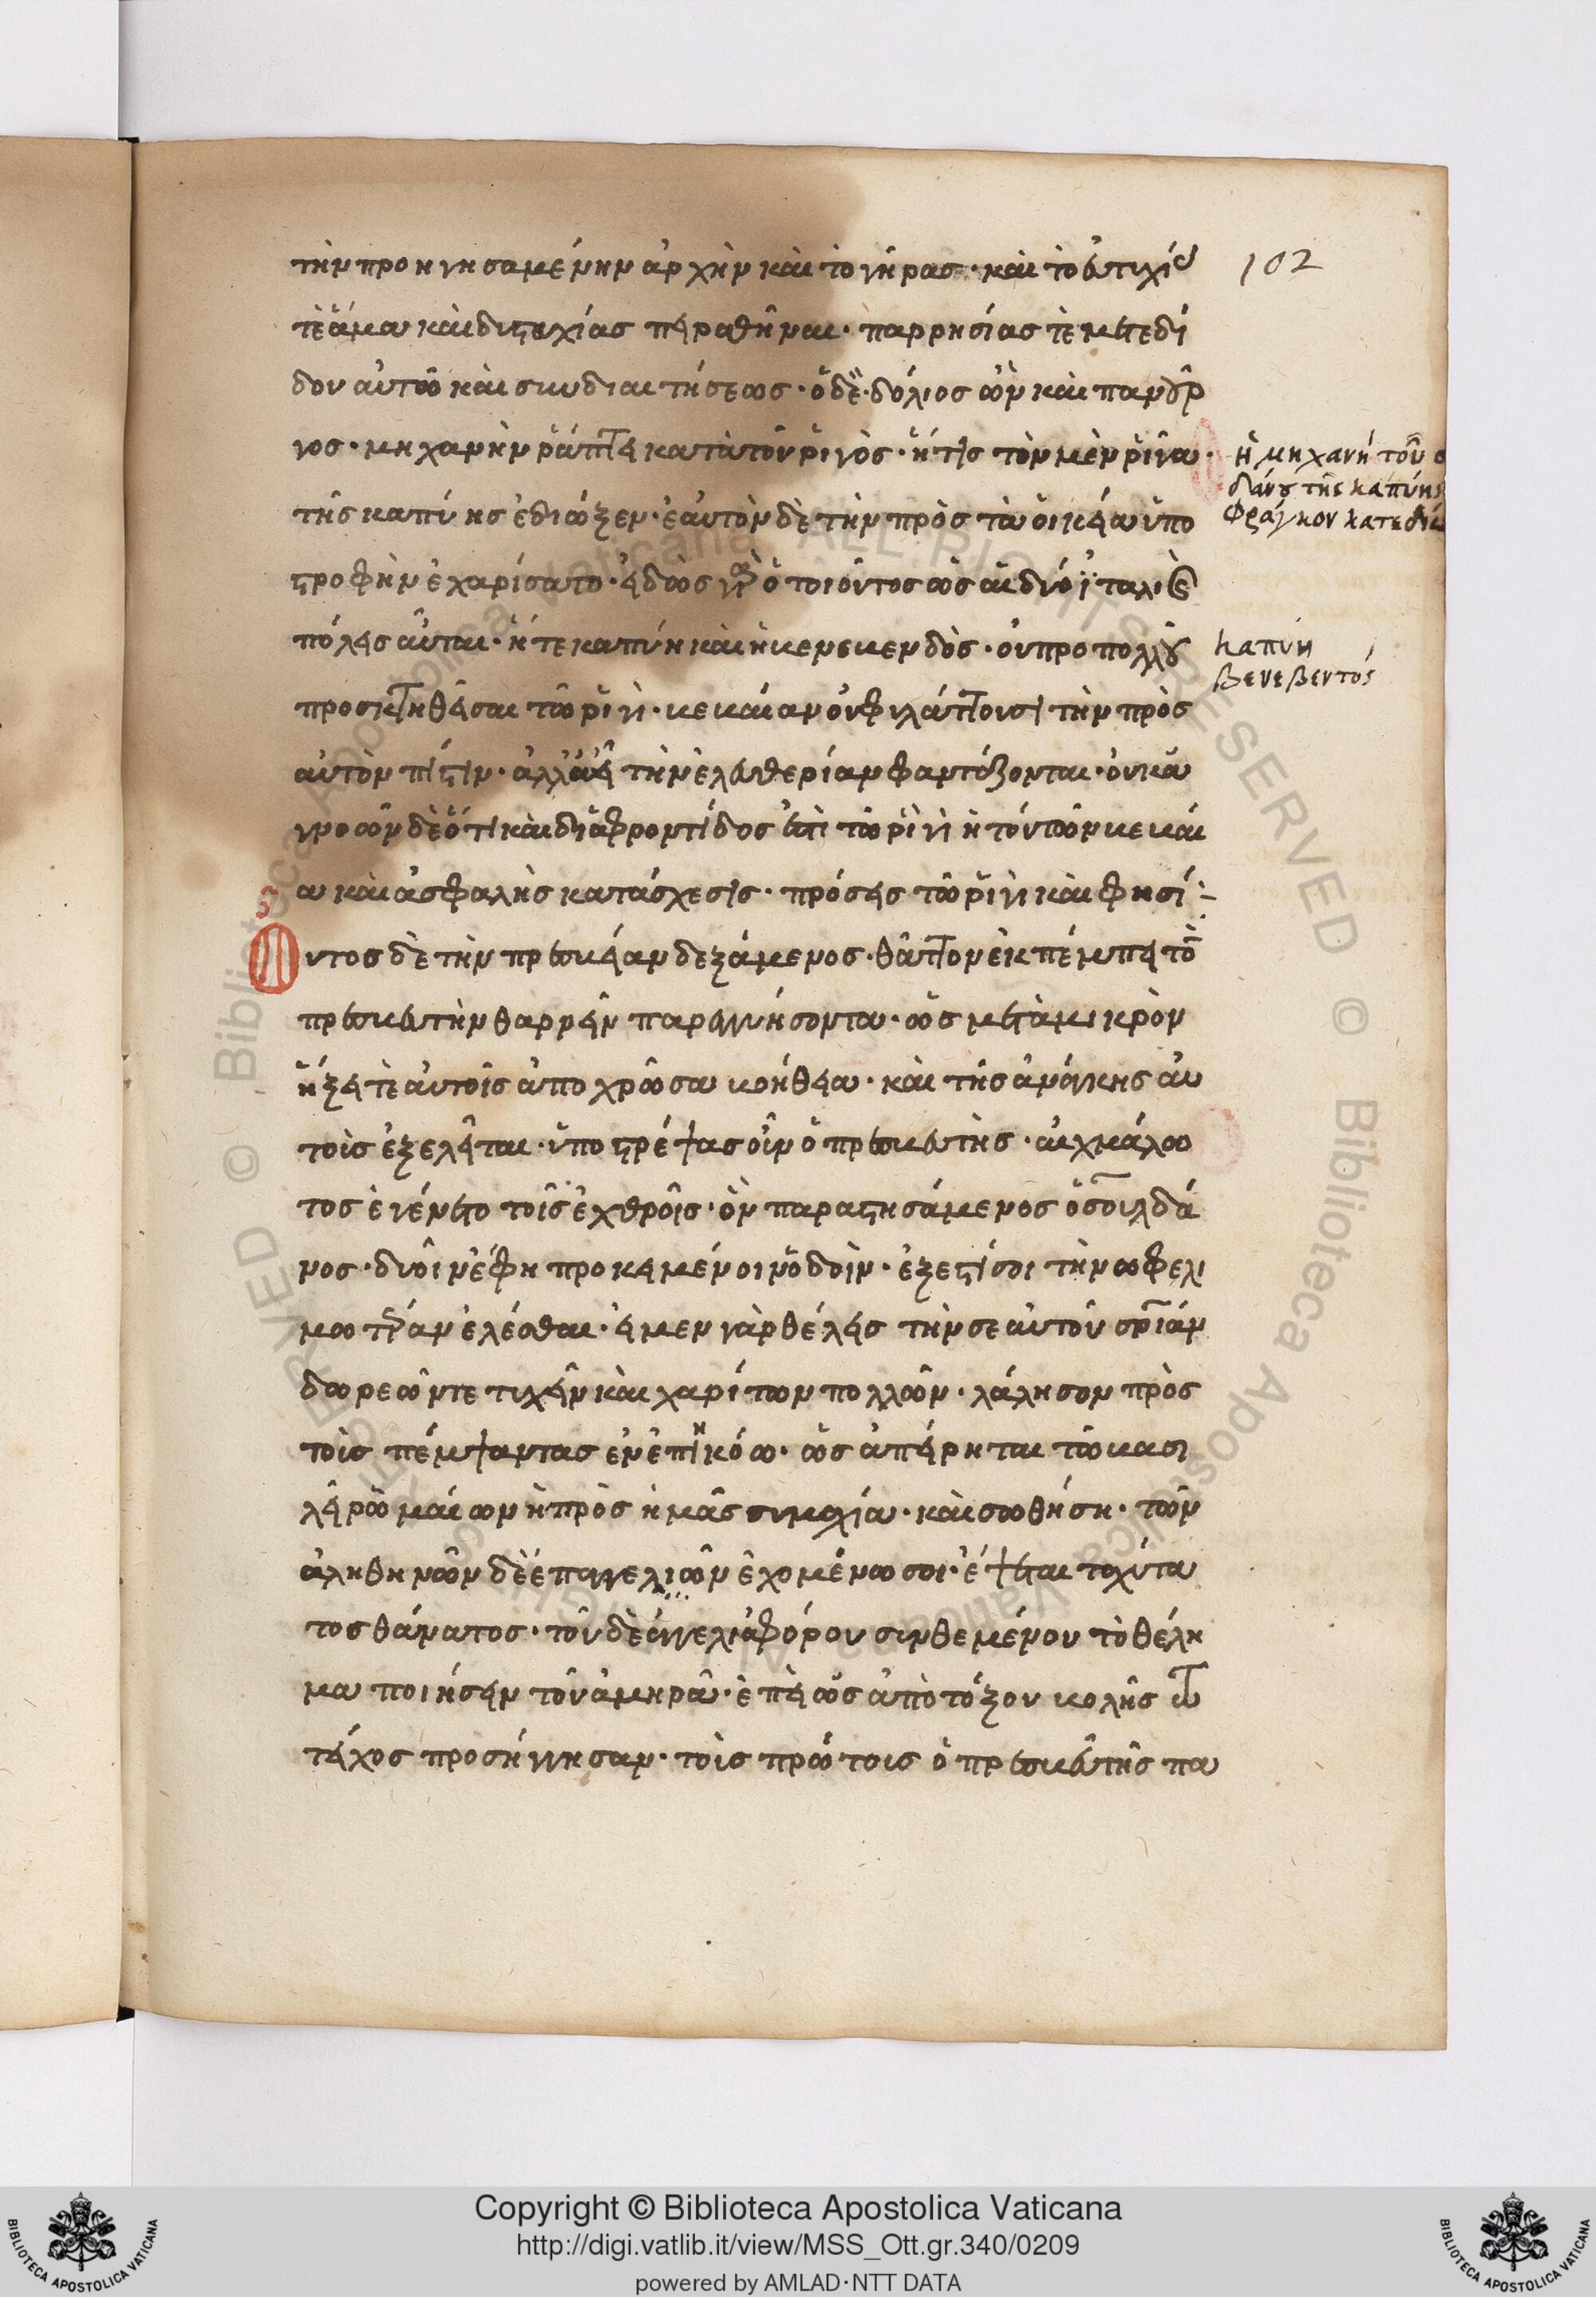 τὴν προηγησαμένην ἀρχὴν καὶ τὸ γῆρας· καὶ τὸ εὐτυχί
τὲ ἅμα καὶ δυστυχίας πειραθῆναι· παρρησίας τὲ μετεδί
δου αὐτῶ καὶ συνδιαιτήσεως· ὁ δὲ δόλιος ὢν καὶ πανοῦρ
γος· μηχανὴν ῥάπτει κατὰ τοῦ ῥιγὸς· ἥτις τὸν μὲν ῥῖγα·
τῆς καπύης ἐδίωξεν· ἑαυτὸν δὲ τὴν πρὸς τὰ οἰκεῖα ὑπο
στροφὴν ἐχαρίσατο· εἰδὼς γὰρ ὁ τοιοῦτος ὡς αἱ δύο ἰταλικαὶ
πόλεις αὗται· ἥ τε καπύη καὶ ἡ βενεβενδὸς· οὐ προ πολλοῦ
προσκτηθεῖσαι τῶ ῥιγὶ· βεβαίαν οὐ φυλάττουσι τὴν πρὸς
αὐτὸν πίστιν· ἀλλ' ἀεὶ τὴν ἐλευθερίαν φαντάζονται· οὐκ ἀ
γνοῶν δὲ ὅτι καὶ διὰ φροντίδος ἐστὶ τῶ ῥιγὶ ἡ τούτων βεβαί
α καὶ ἀσφαλὴς κατάσχεσις· πρόσεισι τῶ ῥιγὶ καὶ φησί:-
Οὗτος δὲ τὴν πρεσβείαν δεξάμενος· θᾶττον ἐκπέμπει τὸν
πρεσβευτὴν θαρρεῖν παρεγγυήσοντα· ὡς μετὰ μικρὸν
ἥξει τὲ αὐτοῖς ἀποχρῶσα βοήθεια· καὶ τῆς ἀνάγκης αὐ
τοὺς ἐξελεῖται· ὑποστρέψας οὖν ὁ πρεσβευτὴς· αἰχμάλω
τος ἐγένετο τοῖς ἐχθροῖς· ὃν παραστησάμενος ὁ σουλδά
νος· δυοῖν ἔφη προκειμένοιν ὁδοῖν· ἔξεστί σοι τὴν ὠφελι
μωτέραν ἑλέσθαι· εἰ μεν γὰρ θέλεις τὴν σεαυτοῦ σρίαν
δωρεῶν τε τυχεῖν καὶ χαρίτων πολλῶν· λάλησον πρὸς
τοὺς πέμψαντας ἐν ἐπηκόω· ὡς ἀπείρηται τῶ βασι
λεῖ ῥωμαίων ἡ πρὸς ἡμᾶς συμμαχία· καὶ σωθήση· τῶν
ἀληθινῶν δὲ ἐπαγγελιῶν ἐχομένω σοι· ἕψεται ταχύτα
τος θάνατος· τοῦ δὲ ἀγγελιαφόρου συνθεμένου τὸ θέλη
μα ποιήσειν τοῦ ἀμηρᾶ· ἐπεὶ ὡς ἀπὸ τόξου βολῆς
τεῖχος προσήγγισαν· τοὺς πρώτους ὁ πρεσβευτὴς πα
102
ἡ μηχανή τοῦ σ
δάνου τῆς καπύης
Φράγκον κατεδίω
καπύη
βενεβεντός
Copyright © Biblioteca Apostolica Vaticana
http://digi.vatlib.it/view/MSS_Ott.gr.340/0209
powered by AMLAD·NTT DATA